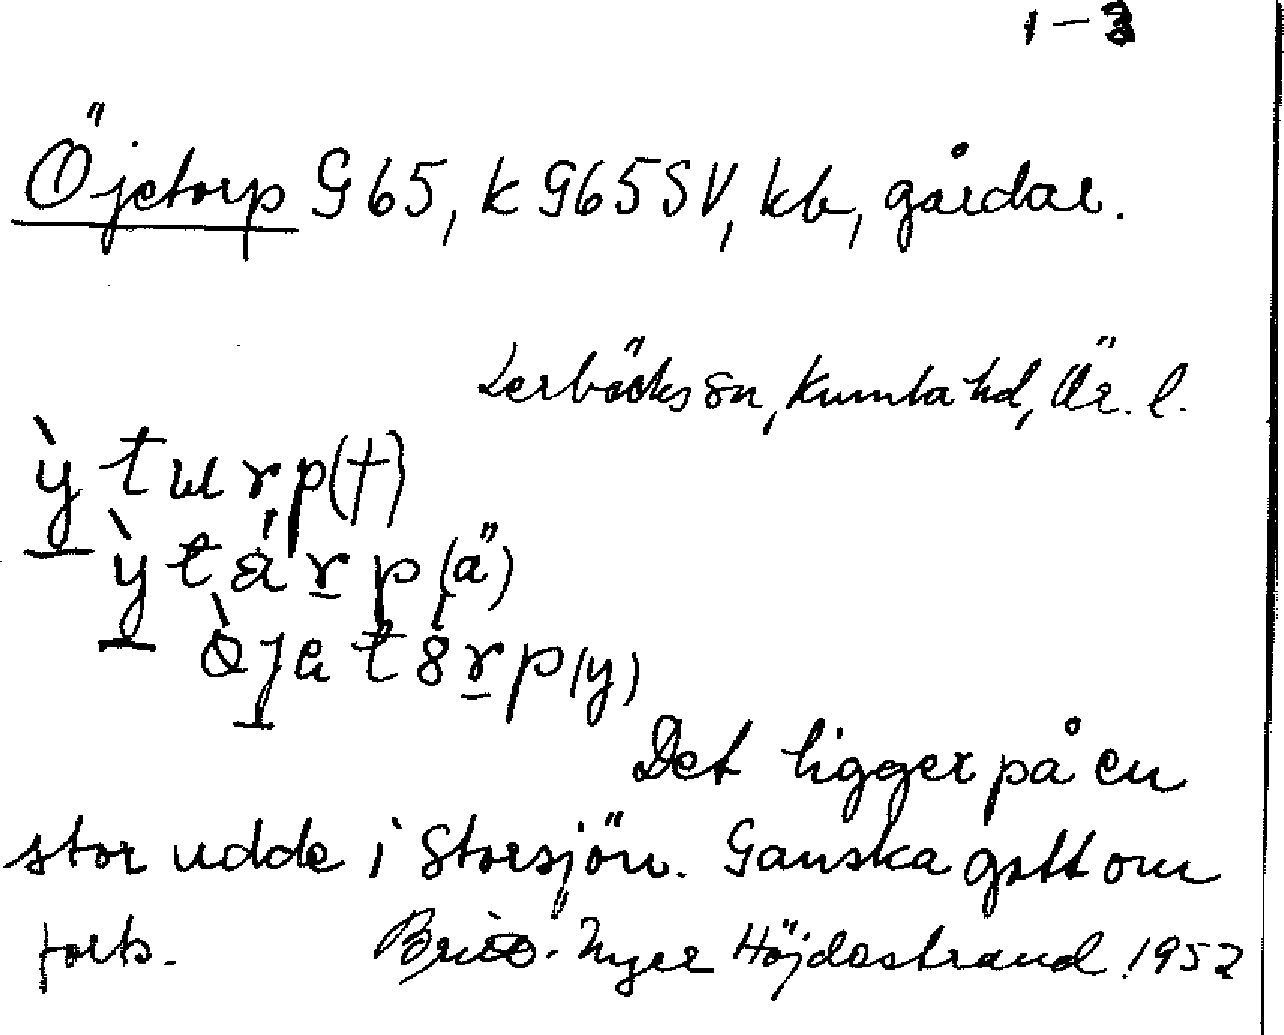 1-3
Öjetorp G65, k G65SV, kb, gårdar.
Lerbäcks sn, Kumla hd, Ör. l.
ỳ t ɯ r p (†)
ỳ t á r p (ä)
ö̀ j e t ó r p (y)
Det ligger på en
stor udde i Storsjön. Ganska gott om
forb. Nyer Höjdestrand 1952